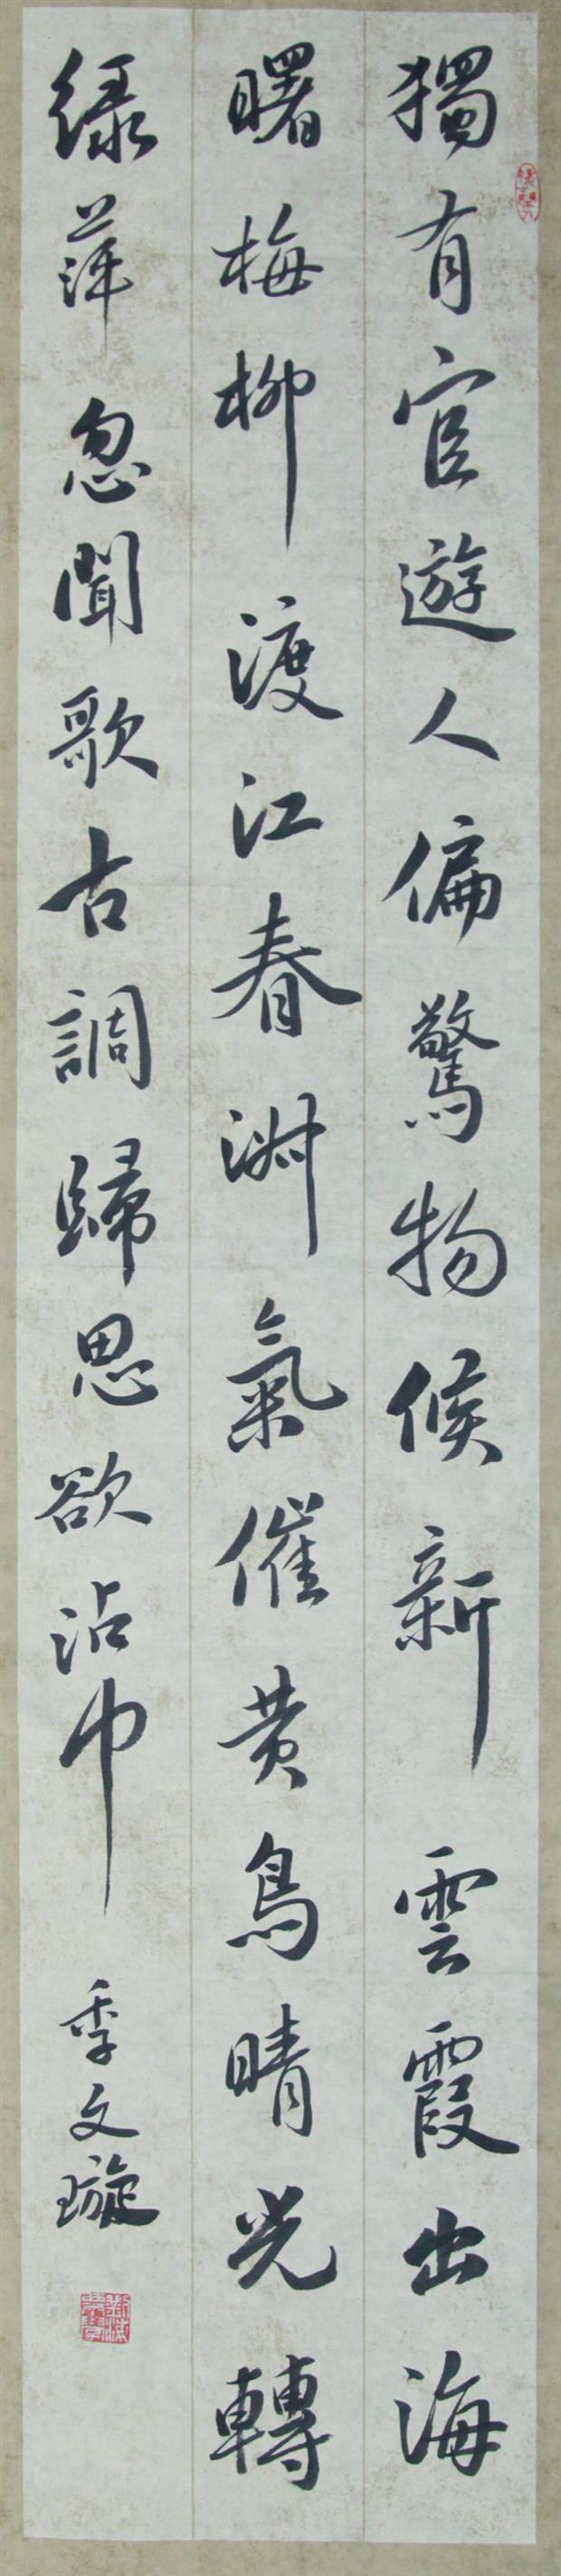 獨有宦遊人偏驚物候新雲霞出海
曙梅柳渡江春淋氣催黄鳥晴光轉
緑萍忽聞歌古調歸思欲沾巾
季文璇